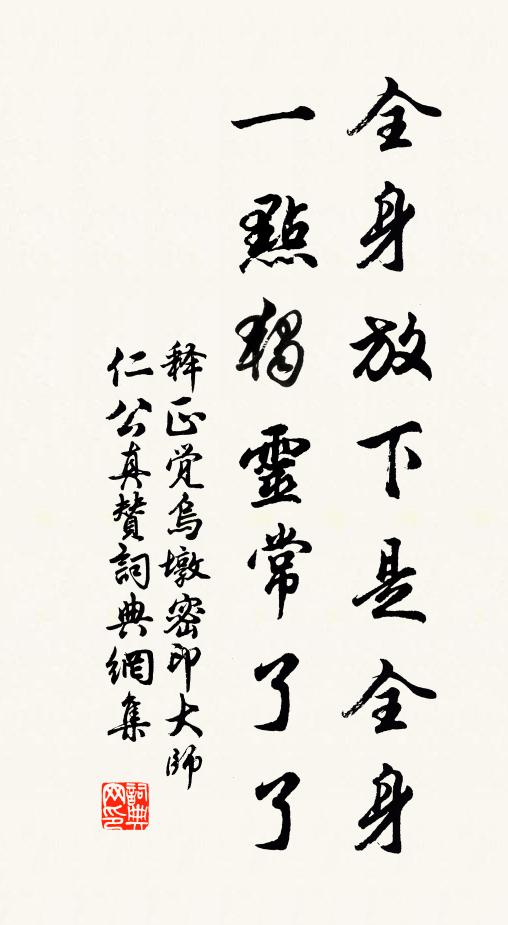 全身放下是全身
一點獨靈常了了
释正覚烏墩密印大師
仁公真贊詞典網集
詞典网印